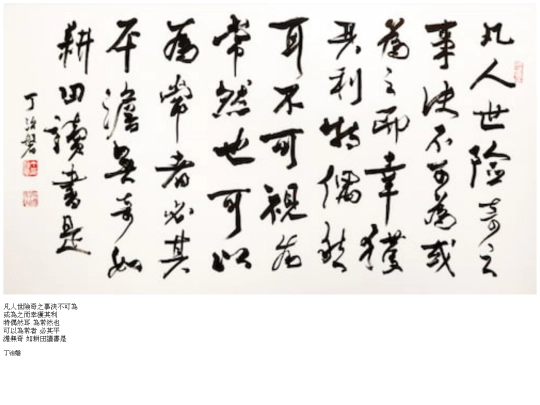 凡人世險奇之
事決不可為或
為之而幸獲
其利特偶然
耳不可視為
常然也可以
為常者必其
平澹無奇如
耕田讀書是
丁治磐
凡人世險奇之事決不可為
或為之而幸獲其利
特偶然耳 為常然也
可以為常者 必其平
澹無奇 如耕田讀書是
丁治磐